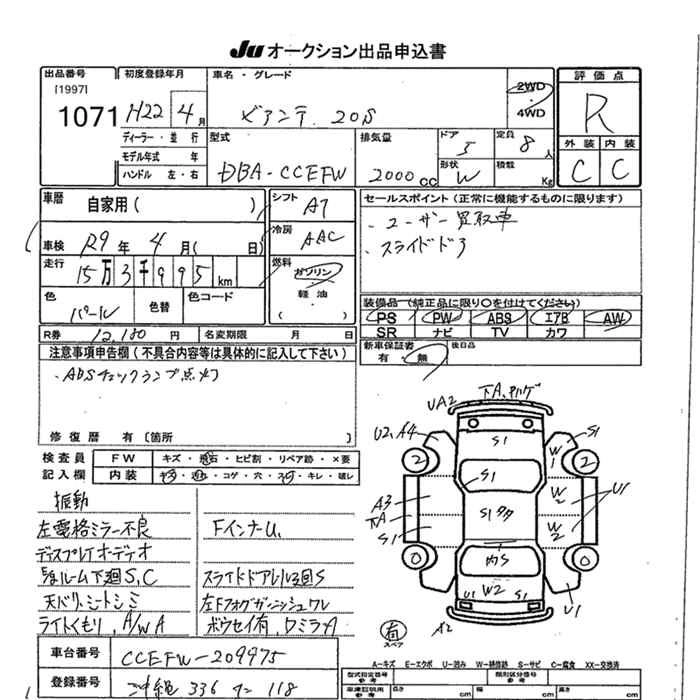 JU オークション出品申込書
出品番号
[1997]
1071
初度登録年月
H22年 4月
ディーラー・並行
モデル年式 年
ハンドル 左・右
車名・グレード
ビアンテ 20S
2WD
・
4WD
型式
DBA-CCEFW
排気量
2000cc
ドア
5
定員
8人
形状
W
積載
Kg
評価点
R
外装 内装
C C
車歴
自家用( )
車検 R9年 4月( 日)
走行 15万3千995km
シフト
AT
冷房
AAC
燃料
ガソリン
・
軽油
( )
色
パール
色替
色コード
R券 12,180円
名変期限 月 日
セールスポイント(正常に機能するものに限ります)
・ユーザー買取車
・スライドドア
装備品(純正品に限り○を付けてください)
PS PW ABS エアB AW
SR ナビ TV カワ
新車保証書
有・無
後日品
注意事項申告欄(不具合内容等は具体的に記入して下さい)
・ABSチェックランプ点灯
修復歴 有〔箇所 〕
検査員
記入欄
FW キズ・飛石・ヒビ割・リペア跡・×要
内装 キズ・汚れ・コゲ・穴・スレ・キレ・破レ
振動
左電格ミラー不良
ディスプレイオーディオ
下廻S、C
天バリ、シートシミ
ライトくもり、A/WA
FインナーU、
スライドドアレール3回S
左Fフォグガーニッシュワレ
車台番号 CCEFW-209975
登録番号 沖縄 336 118
UA2
U2、A4
A3
S1
S1
S1
S1
S1
W1
W2
W2
U1
U1
内S
W2
U1
S1
A2
2
2
0
0
有
スペア
A-キズ E-エクボ U-凹み W-補修跡 S-サビ C-腐食 XX-交換済
型式指定番号
参考
類別区分番号
参考
車庫証明用
参考
長さ cm
幅 cm
高さ cm